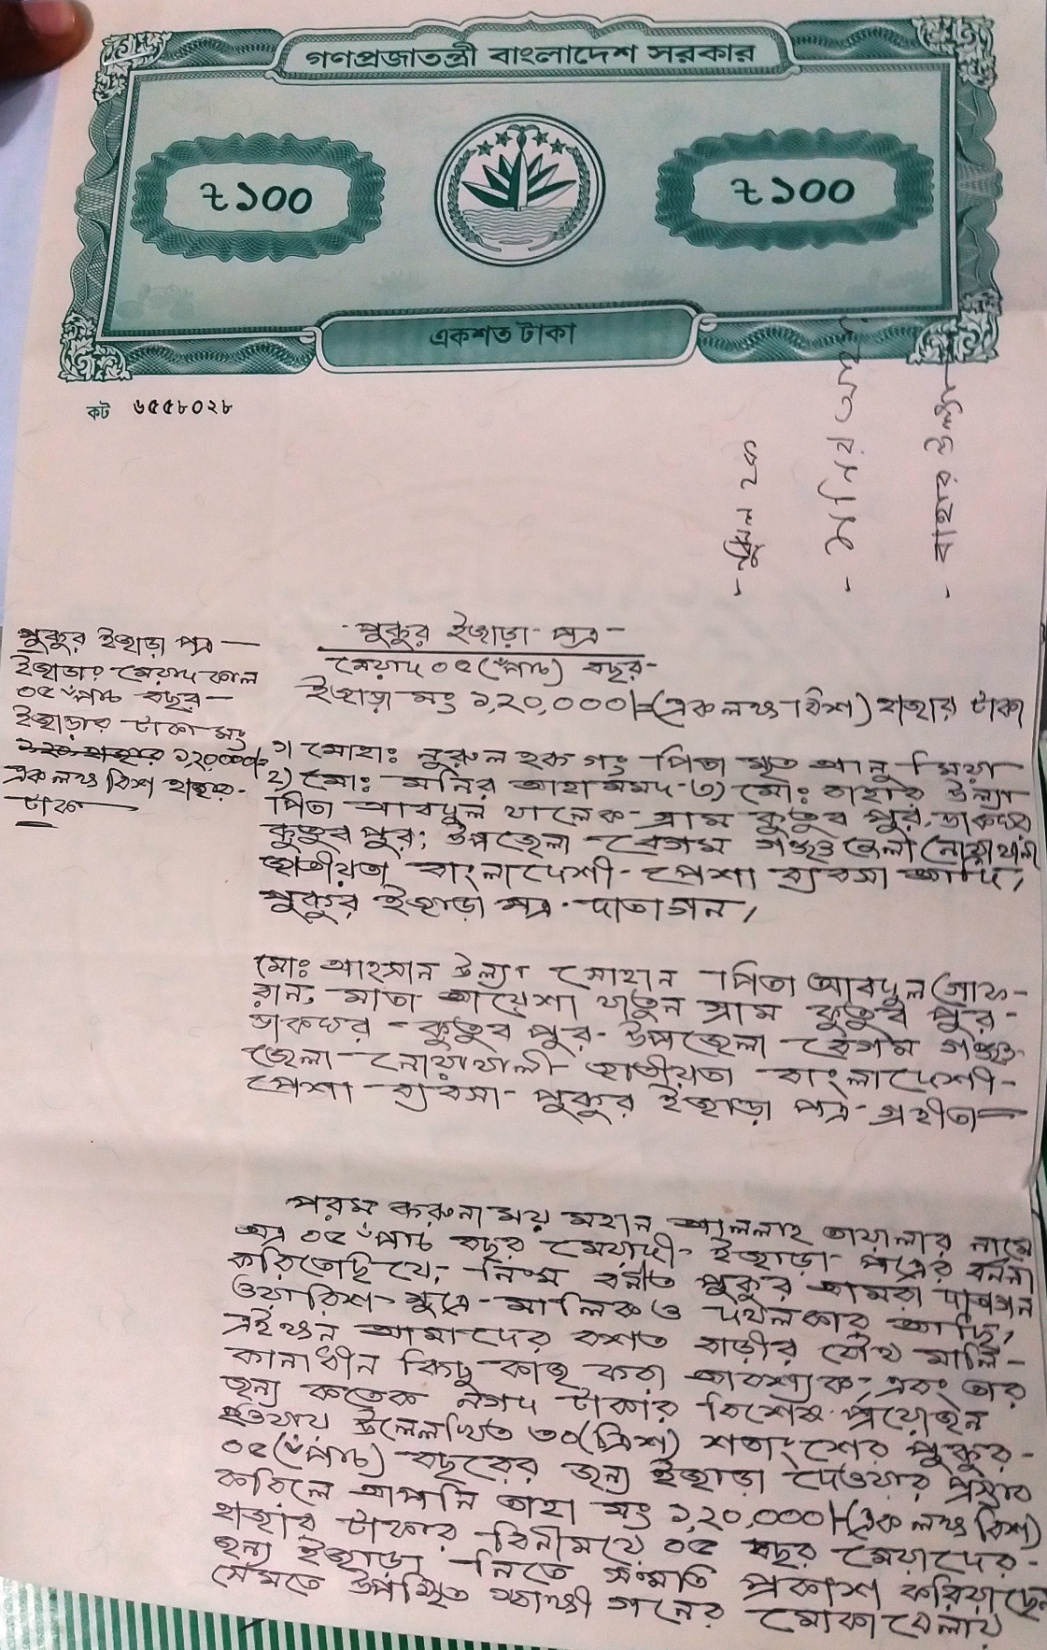 গণপ্রজাতন্ত্রী বাংলাদেশ সরকার
৳১০০
৳১০০
একশত টাকা
কট ৬৫৫৮০২৮
- নুরুল হক
- মনির আহাম্মদ
- বাহার উল্যা
পুকুর ইজাড়া পত্র —
ইজাড়ার মেয়াদ কাল
০৫ পাঁচ বছর —
ইজাড়ার টাকা মং
১২০০০০/=
এক লক্ষ বিশ হাজার -
টাকা
- পুকুর ইজাড়া পত্র -
মেয়াদ ০৫ (পাঁচ) বছর -
ইজাড়া মং ১,২০,০০০/=(এক লক্ষ বিশ) হাজার টাকা
১) মোহাঃ নুরুল হক গং পিতা মৃত আনু মিয়া
২) মোঃ মনির আহাম্মদ - ৩) মোঃ বাহার উল্যা
পিতা আবদুল খালেক - গ্রাম কুতুব পুর, ডাকঘর
কুতুব পুর; উপজেলা - বেগম গঞ্জ জেলা নোয়াখালী
জাতীয়তা বাংলাদেশী - পেশা ব্যবসা আদি,
পুকুর ইজাড়া পত্র - দাতাগন,
মোঃ আহসান উল্যা সোহান পিতা আবদুল গোফ-
রান, মাতা আয়েশা খাতুন গ্রাম কুতুব পুর -
ডাকঘর - কুতুব পুর - উপজেলা বেগম গঞ্জ
জেলা - নোয়াখালী জাতীয়তা বাংলাদেশী -
পেশা - ব্যবসা - পুকুর ইজাড়া পত্র - গ্রহীতা —
পরম করুনাময় মহান আল্লাহ তায়ালার নামে
অত্র ০৫ পাঁচ বছর মেয়াদী - ইজাড়া পত্রের বর্ননা
করিতেছি যে, নিম্ম বর্নীত পুকুর আমরা দাতাগন
ওয়ারিশ সুত্রে - মালিক ও দখলকার আছি,
এইক্ষন আমাদের বশত বাড়ীর যৌথ মালি-
কানাধীন কিছু কাজ করা আবশ্যক, এবং তার
জন্য কতেক নগদ টাকার বিশেষ প্রয়োজন
হওয়ায় উল্লেখিত ৩০(ত্রিশ) শতাংশের পুকুর -
০৫ (পাঁচ) বছরের জন্য ইজাড়া দেওয়ার প্রস্তাব
করিলে আপনি তাহা মং ১,২০,০০০/=(এক লক্ষ বিশ)
হাজার টাকার বিনীময়ে ০৫ বছর মেয়াদের -
জন্য ইজাড়া নিতে সম্মতি প্রকাশ করিয়াছেন
সেমতে উপস্থিত স্বাক্ষী গনের মোকাবেলায়